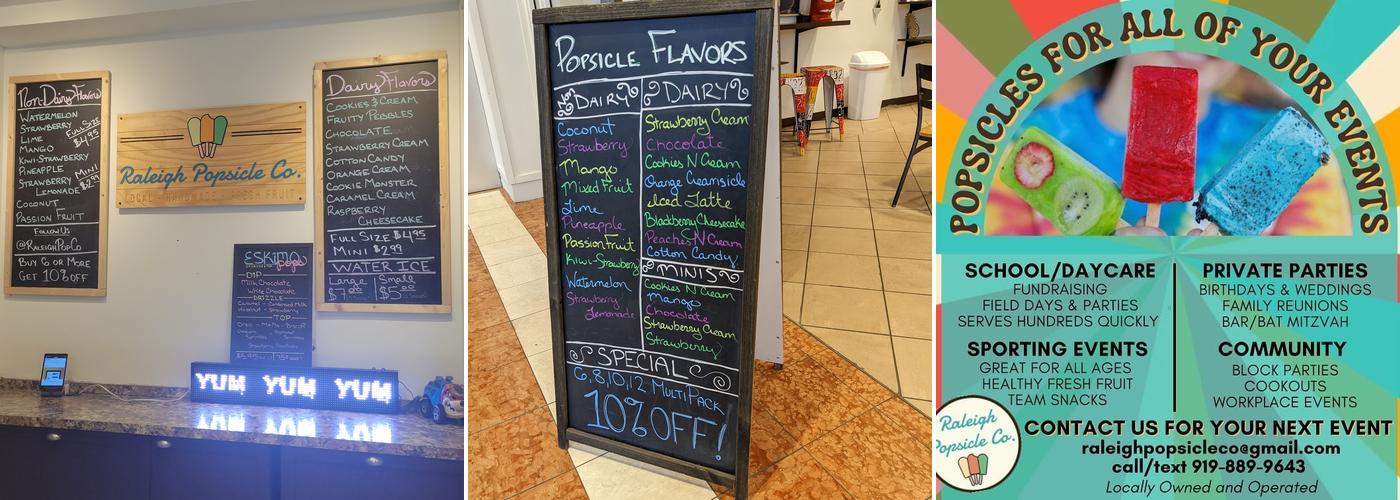 Non-Dairy Flavors
WATERMELON
STRAWBERRY
LIME
MANGO
KIWI-STRAWBERRY
PINEAPPLE
STRAWBERRY
LEMONADE
COCONUT
PASSION FRUIT
FULL SIZE
$4.95
MINI
$2.99
FOLLOW US:
@RALEIGHPOPCO
BUY 6 OR MORE
GET 10% OFF
Raleigh Popsicle Co.
LOCAL HANDMADE FRESH FRUIT
Dairy Flavors
COOKIES & CREAM
FRUITY PEBBLES
CHOCOLATE
STRAWBERRY CREAM
COTTON CANDY
ORANGE CREAM
COOKIE MONSTER
CARAMEL CREAM
RASPBERRY
CHEESECAKE
FULL SIZE $4.95
MINI $2.99
WATER ICE
Large Small
$7.00 $5.00
ESKIMO
pops
DIP
Milk Chocolate
White Chocolate
DRIZZLE
Caramel - Condensed Milk
Hazelnut - Strawberry
TOP
YUM YUM YUM
POPSICLE FLAVORS
Non DAIRY
Coconut
Strawberry
Mango
Mixed Fruit
Lime
Pineapple
Passion Fruit
Kiwi-Strawberry
Watermelon
Strawberry
Lemonade
DAIRY
Strawberry Cream
Chocolate
Cookies N Cream
Orange Creamsicle
Iced Latte
Blackberry Cheesecake
Peaches N Cream
Cotton Candy
MINIS
Cookies N Cream
Mango
Chocolate
Strawberry Cream
Strawberry
SPECIAL
6,8,10,12 MULTIPACK
10% OFF!
POPSICLES FOR ALL OF YOUR EVENTS
SCHOOL/DAYCARE
FUNDRAISING
FIELD DAYS & PARTIES
SERVES HUNDREDS QUICKLY
PRIVATE PARTIES
BIRTHDAYS & WEDDINGS
FAMILY REUNIONS
BAR/BAT MITZVAH
SPORTING EVENTS
GREAT FOR ALL AGES
HEALTHY FRESH FRUIT
TEAM SNACKS
COMMUNITY
BLOCK PARTIES
COOKOUTS
WORKPLACE EVENTS
Raleigh
Popsicle Co.
CONTACT US FOR YOUR NEXT EVENT
raleighpopsicleco@gmail.com
call/text 919-889-9643
Locally Owned and Operated